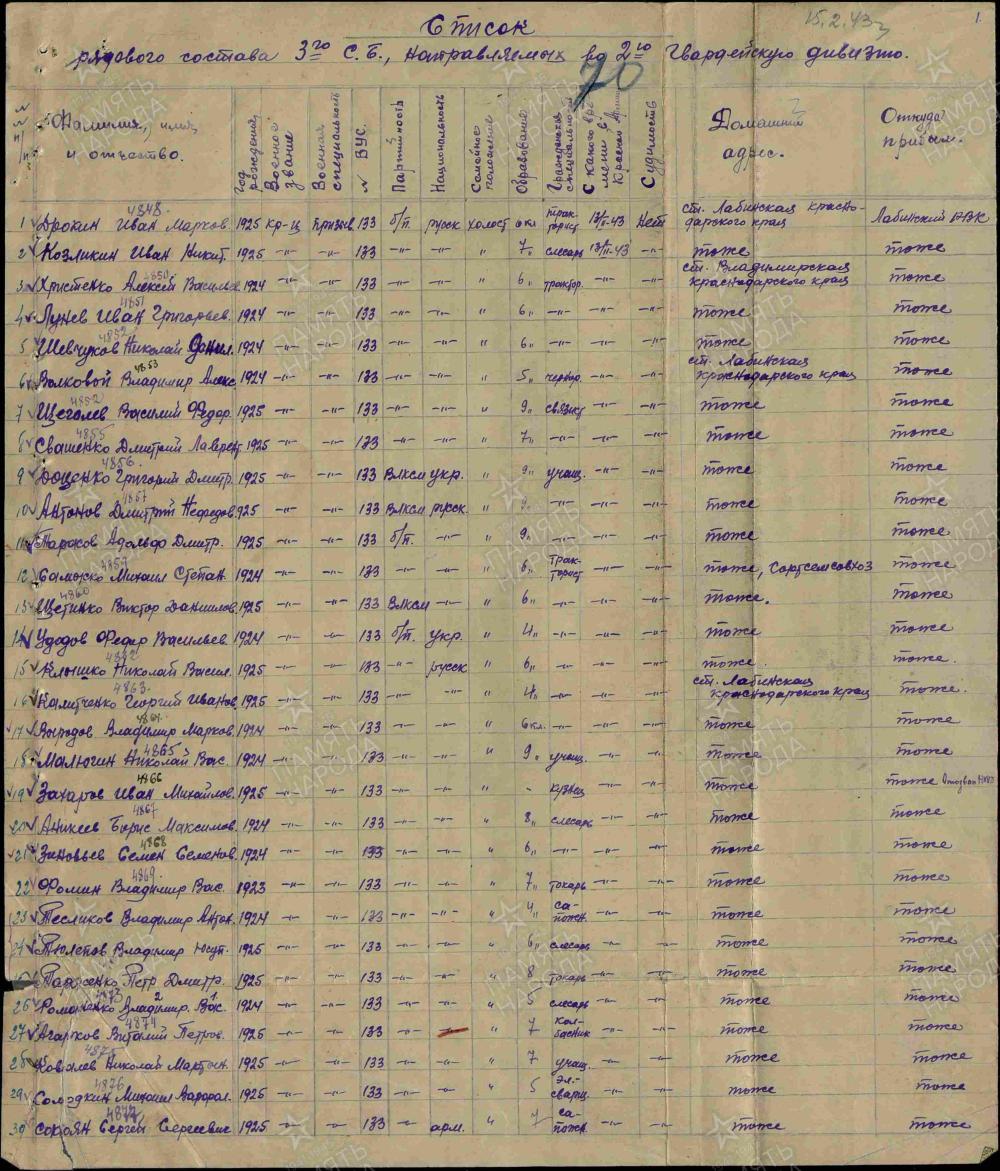 15.2.43г
1.
Список
рядового состава 3го С.Б., направляемых во 2ю Гвардейскую дивизию.
70
№ п/п Фамилия, имя и отчество. Год рождения Военное звание Военная специальность № ВУС. Партийность Национальность Семейное положение Образование Гражданская специальность С какого времени в Красной Армии Судимость Домашний адрес. Откуда прибыл.
4848.
1 Дрокин Иван Марков. 1925 кр-ц 133 б/п. русск холост 6 кл трак-торист 13/II-43 Нет ст. Лабинская красно-дарского края Лабинский РВК
2 Козликин Иван Никит. 1925 -"- -"- 133 -"- -"- " 7" слесарь 13/II-43 -"- тоже тоже
4850
3 Христенко Алексей Василье 1924 -"- -"- 133 -"- -"- " 6" трактор. -"- -"- ст. Владимирская краснодарского края тоже
4851
4 Лунев Иван Григорьев. 1924 -"- -"- 133 -"- -"- " 6" -"- -"- -"- тоже тоже
4852
5 Шевчуков Николай Данил. 1924 -"- -"- 133 -"- -"- " 6" -"- -"- -"- тоже тоже
4853
6 Волковой Владимир Алекс 1924 -"- -"- 133 -"- -"- " 5" чернор. -"- -"- ст. Лабинская краснодарского края тоже
7 Щеголев Василий Федор. 1925 -"- -"- 133 -"- -"- " 9" связист -"- -"- тоже тоже
4855
8 Сващенко Дмитрий Лаврент. 1925 -"- -"- 133 -"- -"- " 7" -"- -"- -"- тоже тоже
4856.
9 Доценко Григорий Дмитр. 1925 -"- -"- 133 Влксм укр. " 9" учащ. -"- -"- тоже тоже
4857
10 Антонов Дмитрий Нефедов 925 -"- -"- 133 Влксм русск. " 9" -"- -"- -"- тоже тоже
11 Тарасов Адольф Дмитр. 1925 -"- -"- 133 б/п. -"- " 9" -"- -"- -"- тоже тоже
4859
12 Саможко Михаил Степан. 1924 -"- -"- 133 -"- -"- " 6" трак-торист -"- -"- тоже, Сортсемсовхоз тоже
4860
13 Щетинко Виктор Даниилов. 1925 -"- -"- 133 Влксм -"- " 6" -"- -"- -"- тоже. тоже
14 Удодов Федор Васильев 1924 -"- -"- 133 б/п. укр. " 4" -"- -"- -"- тоже тоже
4862
15 Николай Васил. 1925 -"- -"- 133 -"- русск " 6" -"- -"- -"- тоже. тоже.
4863.
16 Калитченко Георгий Иванов 1925 -"- -"- 133 -"- -"- " 4" -"- -"- -"- ст. Лабинская краснодарского края тоже.
4864.
17 Владимир Марков. 1924 -"- -"- 133 -"- -"- " 6 кл. -"- -"- -"- тоже тоже
4865
18 Малюгин Николай Вас. 1924 -"- -"- 133 -"- -"- " 9" учащ. -"- -"- тоже тоже
4866
19 Захаров Иван Михайлов. 1925 -"- -"- 133 -"- -"- " - кузнец -"- -"- тоже тоже
4867
20 Аникеев Борис Максимов. 1924 -"- -"- 133 -"- -"- " 8" слесарь -"- -"- тоже тоже
4868
21 Зиновьев Семен Семенов. 1924 -"- -"- 133 -"- -"- " 6" -"- -"- -"- тоже тоже
4869.
22 Фомин Владимир Вас. 1923 -"- -"- 133 -"- -"- " 7" токарь -"- -"- тоже тоже
23 Тесликов Владимир Антон. 1924 -"- -"- 133 -"- -"- " 4" са-пожн. -"- -"- тоже тоже
24 Тюлепов Владимир 1925 -"- -"- 133 -"- -"- " 6" слесарь -"- -"- тоже тоже
25 Петр Дмитр. 1925 -"- -"- 133 -"- -"- " 8 токарь -"- -"- тоже тоже
4873
26 Романенко Владимир Вас. 1924 -"- -"- 133 -"- -"- " 5 слесарь -"- -"- тоже тоже
4874
27 Агарков Виталий Петров. 1925 -"- -"- 133 -"- " 7 кол-басник -"- -"- тоже тоже
4875
28 Ковалев Николай Мартын. 1925 -"- -"- 133 -"- -"- " 7 учащ. -"- -"- тоже тоже
4876
29 Солодкин Михаил 1925 -"- -"- 133 -"- -"- " 5 эл-сварщ. -"- -"- тоже тоже
4877
30 Сокоян Сергей Сергеевич 1925 -"- -"- 133 -"- арм. " 7 са-пожн. -"- -"- тоже тоже
ПАМЯТЬ НАРОДА